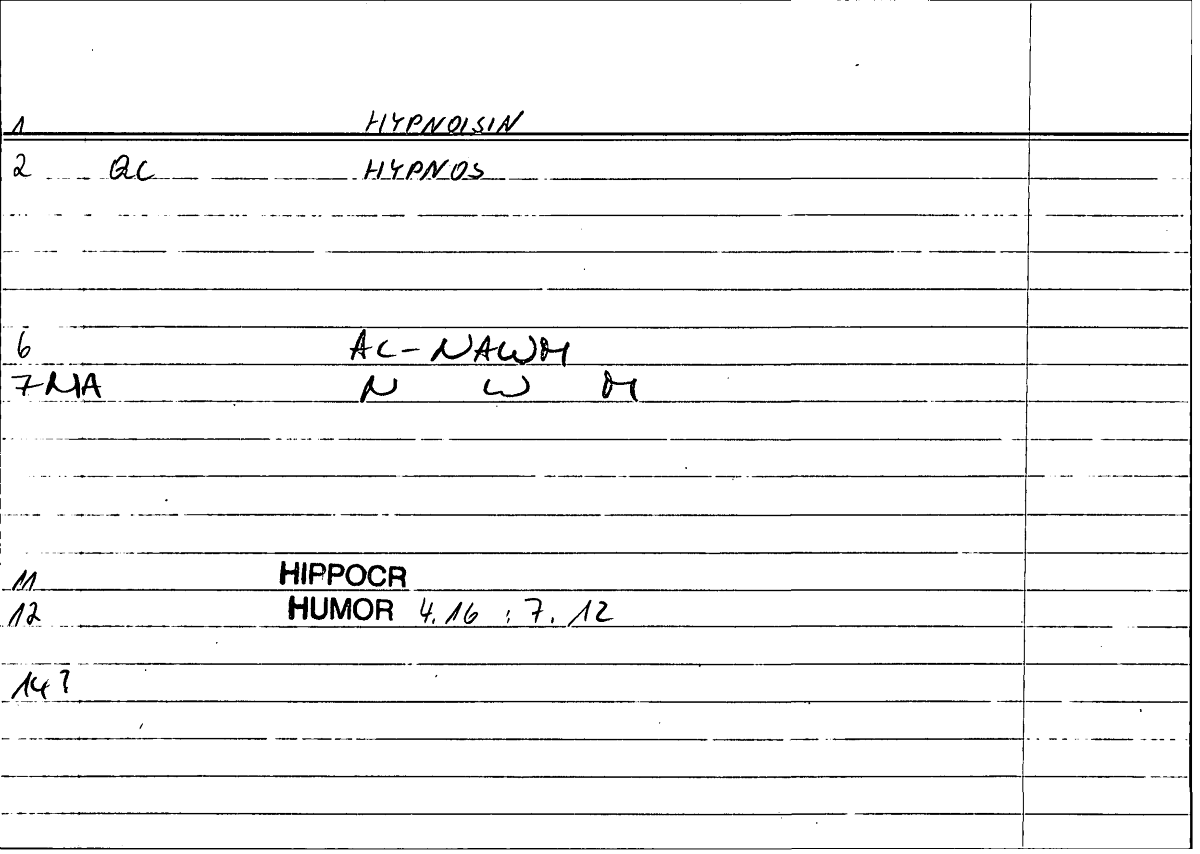 1 HYPNOISIN
2 QC HYPNOS
6 AC-NAWM
7 NA N W M
11 HIPPOCR
12 HUMOR 4.16 : 7.12
14?